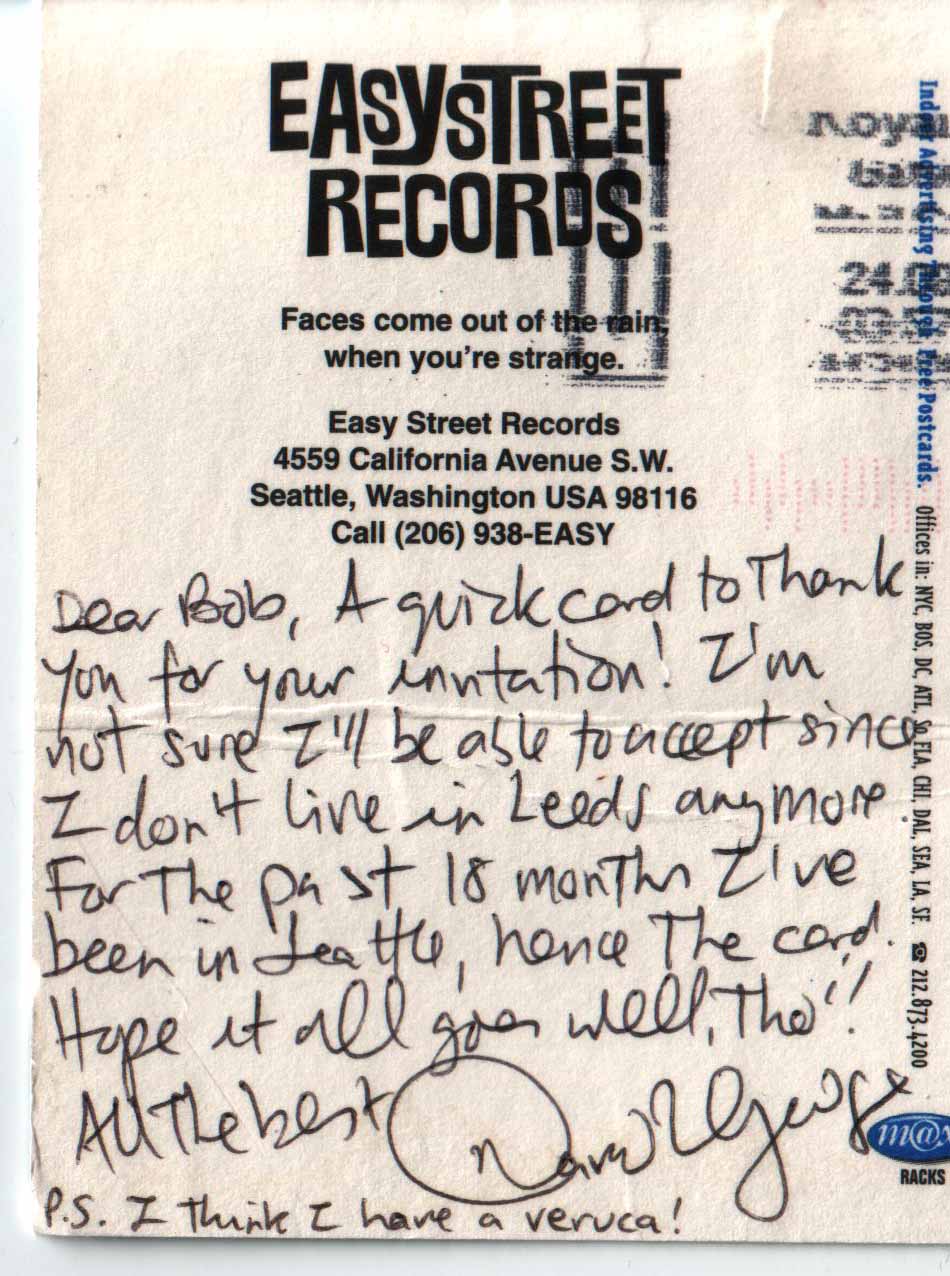 EASY STREET
RECORDS
Faces come out of the rain,
when you're strange.
Easy Street Records
4559 California Avenue S.W.
Seattle, Washington USA 98116
Call (206) 938-EASY
Dear Bob, A quick card to Thank
you for your invitation! I'm
not sure I'll be able to accept since
I don't live in Leeds anymore.
For The past 18 months I've
been in Seattle, hence The card.
Hope it all goes well, Tho'!
All The best
George
P.S. I Think I have a veruca!
Royal
24.0
Indoor Advertising Through Free Postcards. Offices in: NYC, BOS, DC, ATL, So. FLA, CHI, DAL, SEA, LA, SF. ☎ 212.873.4200
m@x
RACKS